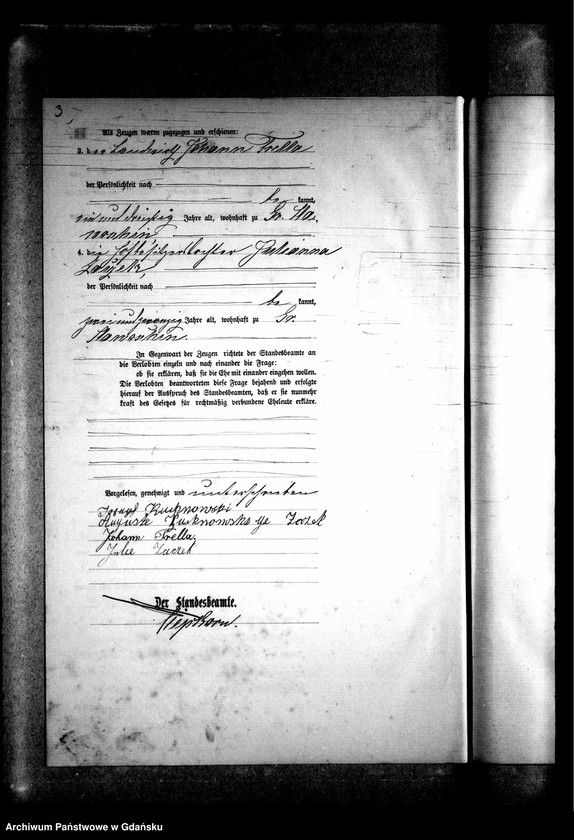 3.
Als Zeugen waren zugezogen und erschienen:
3. der Landwirth Johann Trella
der Persönlichkeit nach
be kannt,
ein und dreißig Jahre alt, wohnhaft zu Gr.
4. die Hofbesitzertochter Julianna
der Persönlichkeit nach
be kannt,
zwei und zwanzig Jahre alt, wohnhaft zu Gr.
In Gegenwart der Zeugen richtete der Standesbeamte an
die Verlobten einzeln und nach einander die Frage:
ob sie erklären, daß sie die Ehe mit einander eingehen wollen.
Die Verlobten beantworteten diese Frage bejahend und erfolgte
hierauf der Ausspruch des Standesbeamten, daß er sie nunmehr
kraft des Gesetzes für rechtmäßig verbundene Eheleute erkläre.
Vorgelesen, genehmigt und unterschrieben
Joseph
Auguste
Johann Trella.
Julie
Der Standesbeamte.
Archiwum Państwowe w Gdańsku